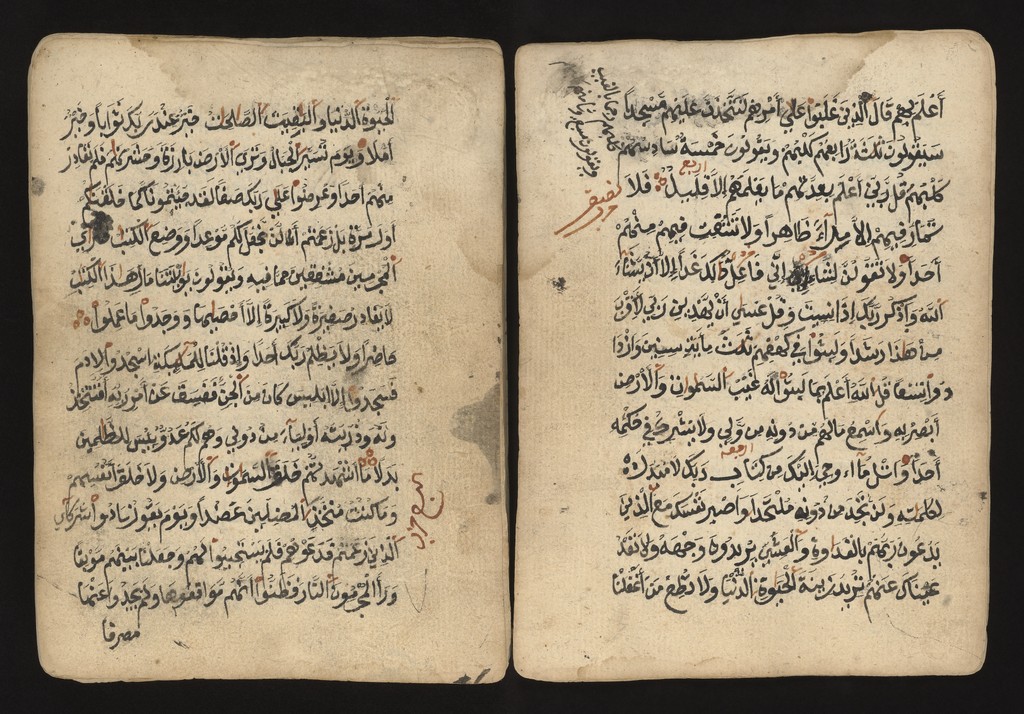 أعلم بهم قال الذين غلبوا على أمرهم لنتخذن عليهم مسجدا
سيقولون ثلثة رابعهم كلبهم ويقولون خمسة سادسهم
كلبهم رجما بالغيب
ويقولون سبعة وثامنهم
كلبهم قل ربي أعلم بعدتهم ما يعلمهم إلا قليل فلا
تمار فيهم إلا مراء ظاهرا ولا تستفت فيهم منهم
أحدا ولا تقولن لشاىء إني فاعل ذلك غدا إلا أن يشاء
الله واذكر ربك إذا نسيت وقل عسى أن يهدين ربي لأقرب
من هذا رشدا ولبثوا في كهفهم ثلث مائة سنين وازدا
دوا تسعا قل الله أعلم بما لبثوا له غيب السموات والأرض
أبصر به واسمع ما لهم من دونه من ولي ولا يشرك في حكمه
أحدا واتل ما أوحي إليك من كتاب ربك لا مبدل
لكلمته ولن تجد من دونه ملتحدا واصبر نفسك مع الذين
يدعون ربهم بالغداوة والعشي يريدون وجهه ولا تعد
عيناك عنهم تريد زينة الحيوة الدنيا ولا تطع من أغفلنا
الحيوة الدنيا والبقيت الصلحت خير عند ربك ثوابا وخير
أملا ويوم نسير الجبال وترى الأرض بارزة وحشرنهم فلم نغادر
منهم أحدا وعرضوا على ربك صفا لقد جئتمونا كما خلقنكم
أول مرة بل زعمتم ألن نجعل لكم موعدا ووضع الكتب فترى
المجرمين مشفقين مما فيه ويقولون يويلتنا مال هذا الكتب
لا يغادر صغيرة ولا كبيرة إلا أحصيها ووجدوا ما عملوا
حاضرا ولا يظلم ربك أحدا وإذ قلنا للملئكة اسجدوا لادم
فسجدوا إلا إبليس كان من الجن ففسق عن أمر ربه أفتتخذ
ونه وذريته أولياء من دوني وهم لكم عدو بئس للظلمين
بدلا ما أشهدتهم خلق السموت والأرض ولا خلق أنفسهم
وما كنت متخذ المضلين عضدا ويوم يقول نادوا شركاي
الذين زعمتم فدعوهم فلم يستجيبوا لهم وجعلنا بينهم موبقا
ورأ المجرمون النار فظنوا أنهم مواقعوها ولم يجدوا عنها
مصرفا